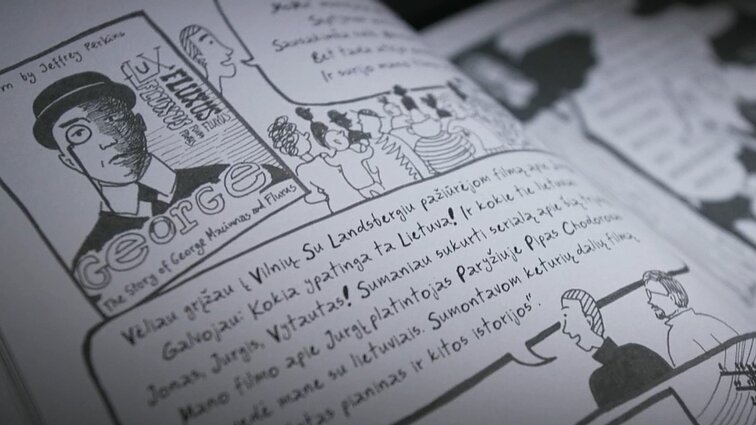 m by Jeffrey Perkins
FLUX
FLUXUS
FLUXUS
George
The Story of George Maciunas and Fluxus
Septyni
Bet tada atėjo
Ir surijo mano
Vėliau grįžau į Vilnių. Su Landsbergiu pažiūrėjom filmą apie
Galvojau: Kokia ypatinga ta Lietuva! Ir kokie tie lietuviai
Jonas, Jurgis, Vytautas! Sumaniau sukurti serialą apie šią
Mano filmo apie Jurgį platintojas Paryžiuje Pipas Chodorovas
mane su lietuviais. Sumontavom keturių dalių filmą
pianinas ir kitos istorijos".